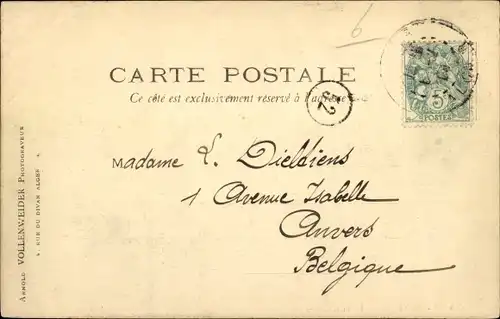 6
CARTE POSTALE
Ce côté est exclusivement réservé à l'adresse
32
5
POSTES
Madame L. Dieldiens
1 Avenue Isabelle
Anvers
Belgique
ARNOLD VOLLENWEIDER PHOTOGRAVEUR
4, RUE DU DIVAN ALGER 4.